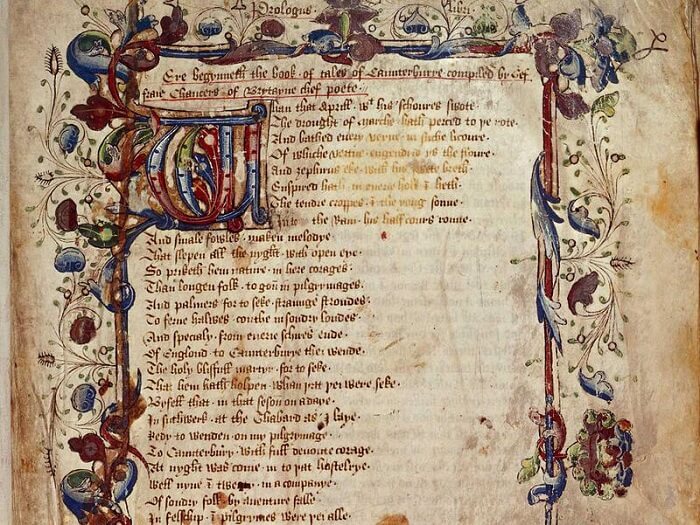 Prologus · libri ·
Ere begynneth the book · of tales of Caunterburye compiled by Gef
fraie Chaucers · of Brytayne chef poete
Whan that Aprill · wt his schoures swote ·
The drought of marche hath perced to þe rote ·
And bathed euery veyne · in suche licoure ·
Of whiche vertue · engendrid ys the floure ·
And zephirus eke · with his swete breth ·
Enspired hath · in euery holt & heth ·
The tendre croppes · & the yong sonne ·
In to · the Ram · his half cours ronne ·
And smale fowles · maken melodye ·
That slepen all the nyght · with open eye ·
So priketh hem nature · in here corages ·
Than longen folk · to goon in pilgrymages ·
And palmers for to seke · straunge strondes ·
To ferne halwes · couthe in sondry londes ·
And specialy · from euerie schires ende ·
Of Englond · to Caunterburye thei wende ·
The holy blisfull martyr · for to seke ·
That hem hath holpen · whan þat þei were seke ·
Byfell that · in that seson on a daye ·
In suthwerk · at the Thabard as I laye ·
Redy to wenden · on my pilgrymage ·
To Caunterbury · with full deuoute corage ·
At nyght was come · in to þat hostelrye ·
Well nyne & twenty · in a companye ·
Of sondry folk · by auenture falle
In felschip · & pilgrymes were þei alle ·